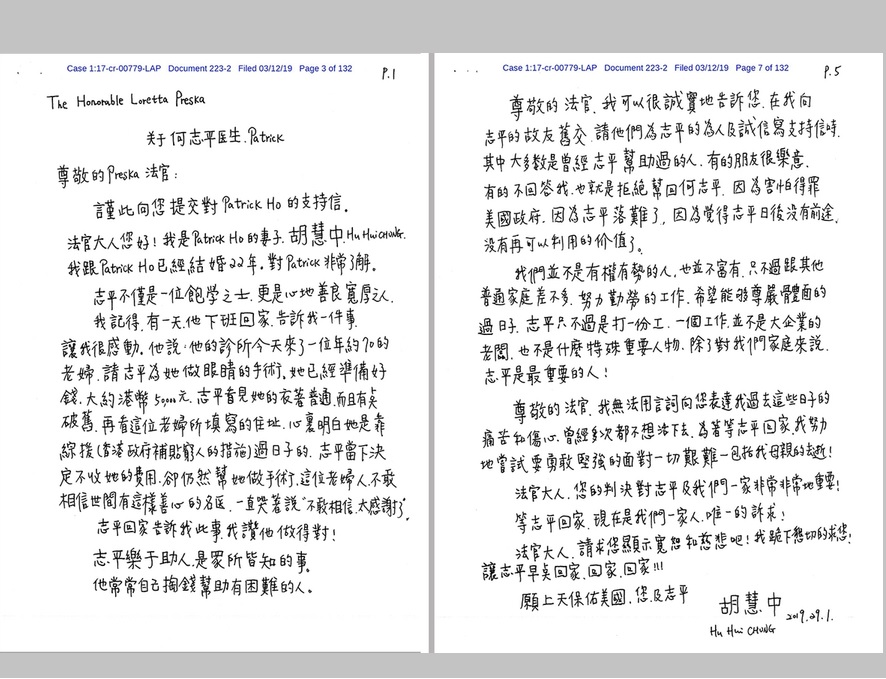 Case 1:17-cr-00779-LAP Document 223-2 Filed 03/12/19 Page 3 of 132
P.1
The Honorable Loretta Preska
关于何志平医生.Patrick
尊敬的Preska 法官：
謹此向您提交對Patrick Ho 的支持信。
法官大人您好！我是Patrick Ho 的妻子.胡慧中.Hu Hui CHUNG.
我跟Patrick Ho已經結婚22年。對Patrick 非常了解。
志平不僅是一位飽學之士.更是心地善良寬厚之人.
我記得.有一天他下班回家.告訴我一件事.
讓我很感動。他說：他的診所今天來了一位年約70的
老婦.請志平為她做眼睛的手術。她已經準備好
錢.大約港幣50,000元。志平看見她的衣著普通.而且有點
破舊.再看這位老婦所填寫的住址.心裏明白她是靠
綜援(香港政府補貼窮人的措施)過日子的.志平當下決
定不收她的費用.卻仍然幫她做手術.這位老婦人.不敢
相信世間有這樣善心的名医.一直哭著說"不敢相信.太感謝了".
志平回家告訴我此事.我讚他做得對！
志平樂于助人.是眾所皆知的事。
他常常自己掏錢幫助有困難的人。
Case 1:17-cr-00779-LAP Document 223-2 Filed 03/12/19 Page 7 of 132
P.5
尊敬的法官.我可以很誠實地告訴您.在我向
志平的故友舊交.請他們為志平的為人及誠信寫支持信時.
其中大多數是曾經志平幫助過的人.有的朋友很樂意.
有的不回答我.也就是拒絕幫回何志平.因為害怕得罪
美國政府.因為志平落難了.因為覺得志平日後没有前途.
没有再可以利用的价值了。
我們並不是有權有勢的人.也並不富有.只不過跟其他
普通家庭差不多.努力勤勞的工作.希望能夠尊嚴體面的
過日子.志平只不過是打一份工.一個工作.並不是大企業的
老闆.也不是什麼特殊重要人物.除了對我們家庭來說.
志平是最重要的人！
尊敬的法官.我無法用言詞向您表達我過去這些日子的
痛苦和傷心.曾經多次都不想活下去.為著等志平回家.我努力
地嘗試要勇敢堅強的面對一切艱難－包括我母親的去逝！
法官大人.您的判決對志平及我們一家非常非常地重要！
等志平回家.現在是我們一家人.唯一的訴求！
法官大人.請求您顯示寬恕和慈悲吧！我跪下懇切的求您！
讓志平早點回家.回家.回家!!!
願上天保佑美國.您.及志平
胡慧中 2019.29.1.
Hu Hui CHUNG